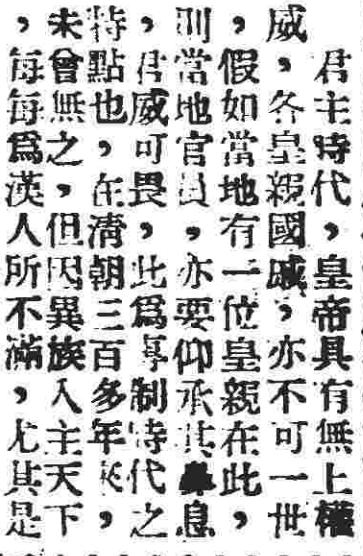 君主時代，皇帝具有無上權
威，各皇親國戚，亦不可一世
，假如當地有一位皇親在此，
則當地官員，亦要仰承其鼻息
，君威可畏，此爲專制時代之
特點也，在清朝三百多年來，
未曾無之，但因異族入主天下
，每每爲漢人所不滿，尤其是